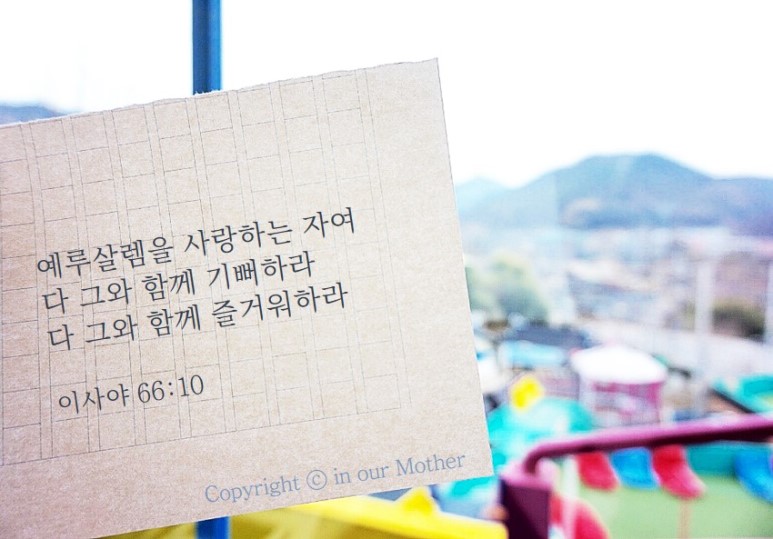 예루살렘을 사랑하는 자여
다 그와 함께 기뻐하라
다 그와 함께 즐거워하라
이사야 66:10
Copyright ⓒ in our Mother